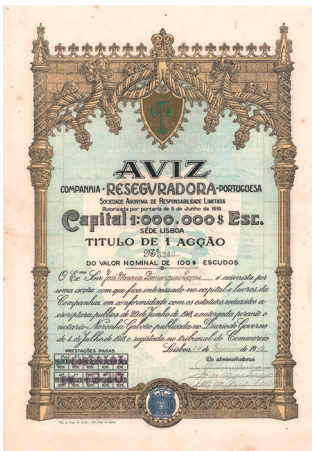 AVIZ
COMPANHIA · RESEGURADORA · PORTUGUESA
SOCIEDADE ANONIMA DE RESPONSABILIDADE LIMITADA
Autorisada por portaria de 5 de Junho de 1918
Capital 1:000.000$ Esc.
SÉDE LISBOA
TITULO DE 1 ACÇÃO
Nº 3242
DO VALOR NOMINAL DE 100$ ESCUDOS
O Exmo Snr. José Maria Domingues é accionista por
uma acção com que fica interessado no capital e lucros da
Companhia, em conformidade com os estatutos reduzidos a
escriptura publica de 20 de junho de 1918, outorgada perante o
notario Noronha Galvão, publicada no Diario do Governo
de 4 de Julho de 1918, e registada no tribunal do Commercio
PRESTAÇÕES PAGAS
Lisboa, de de 19
Os administradores